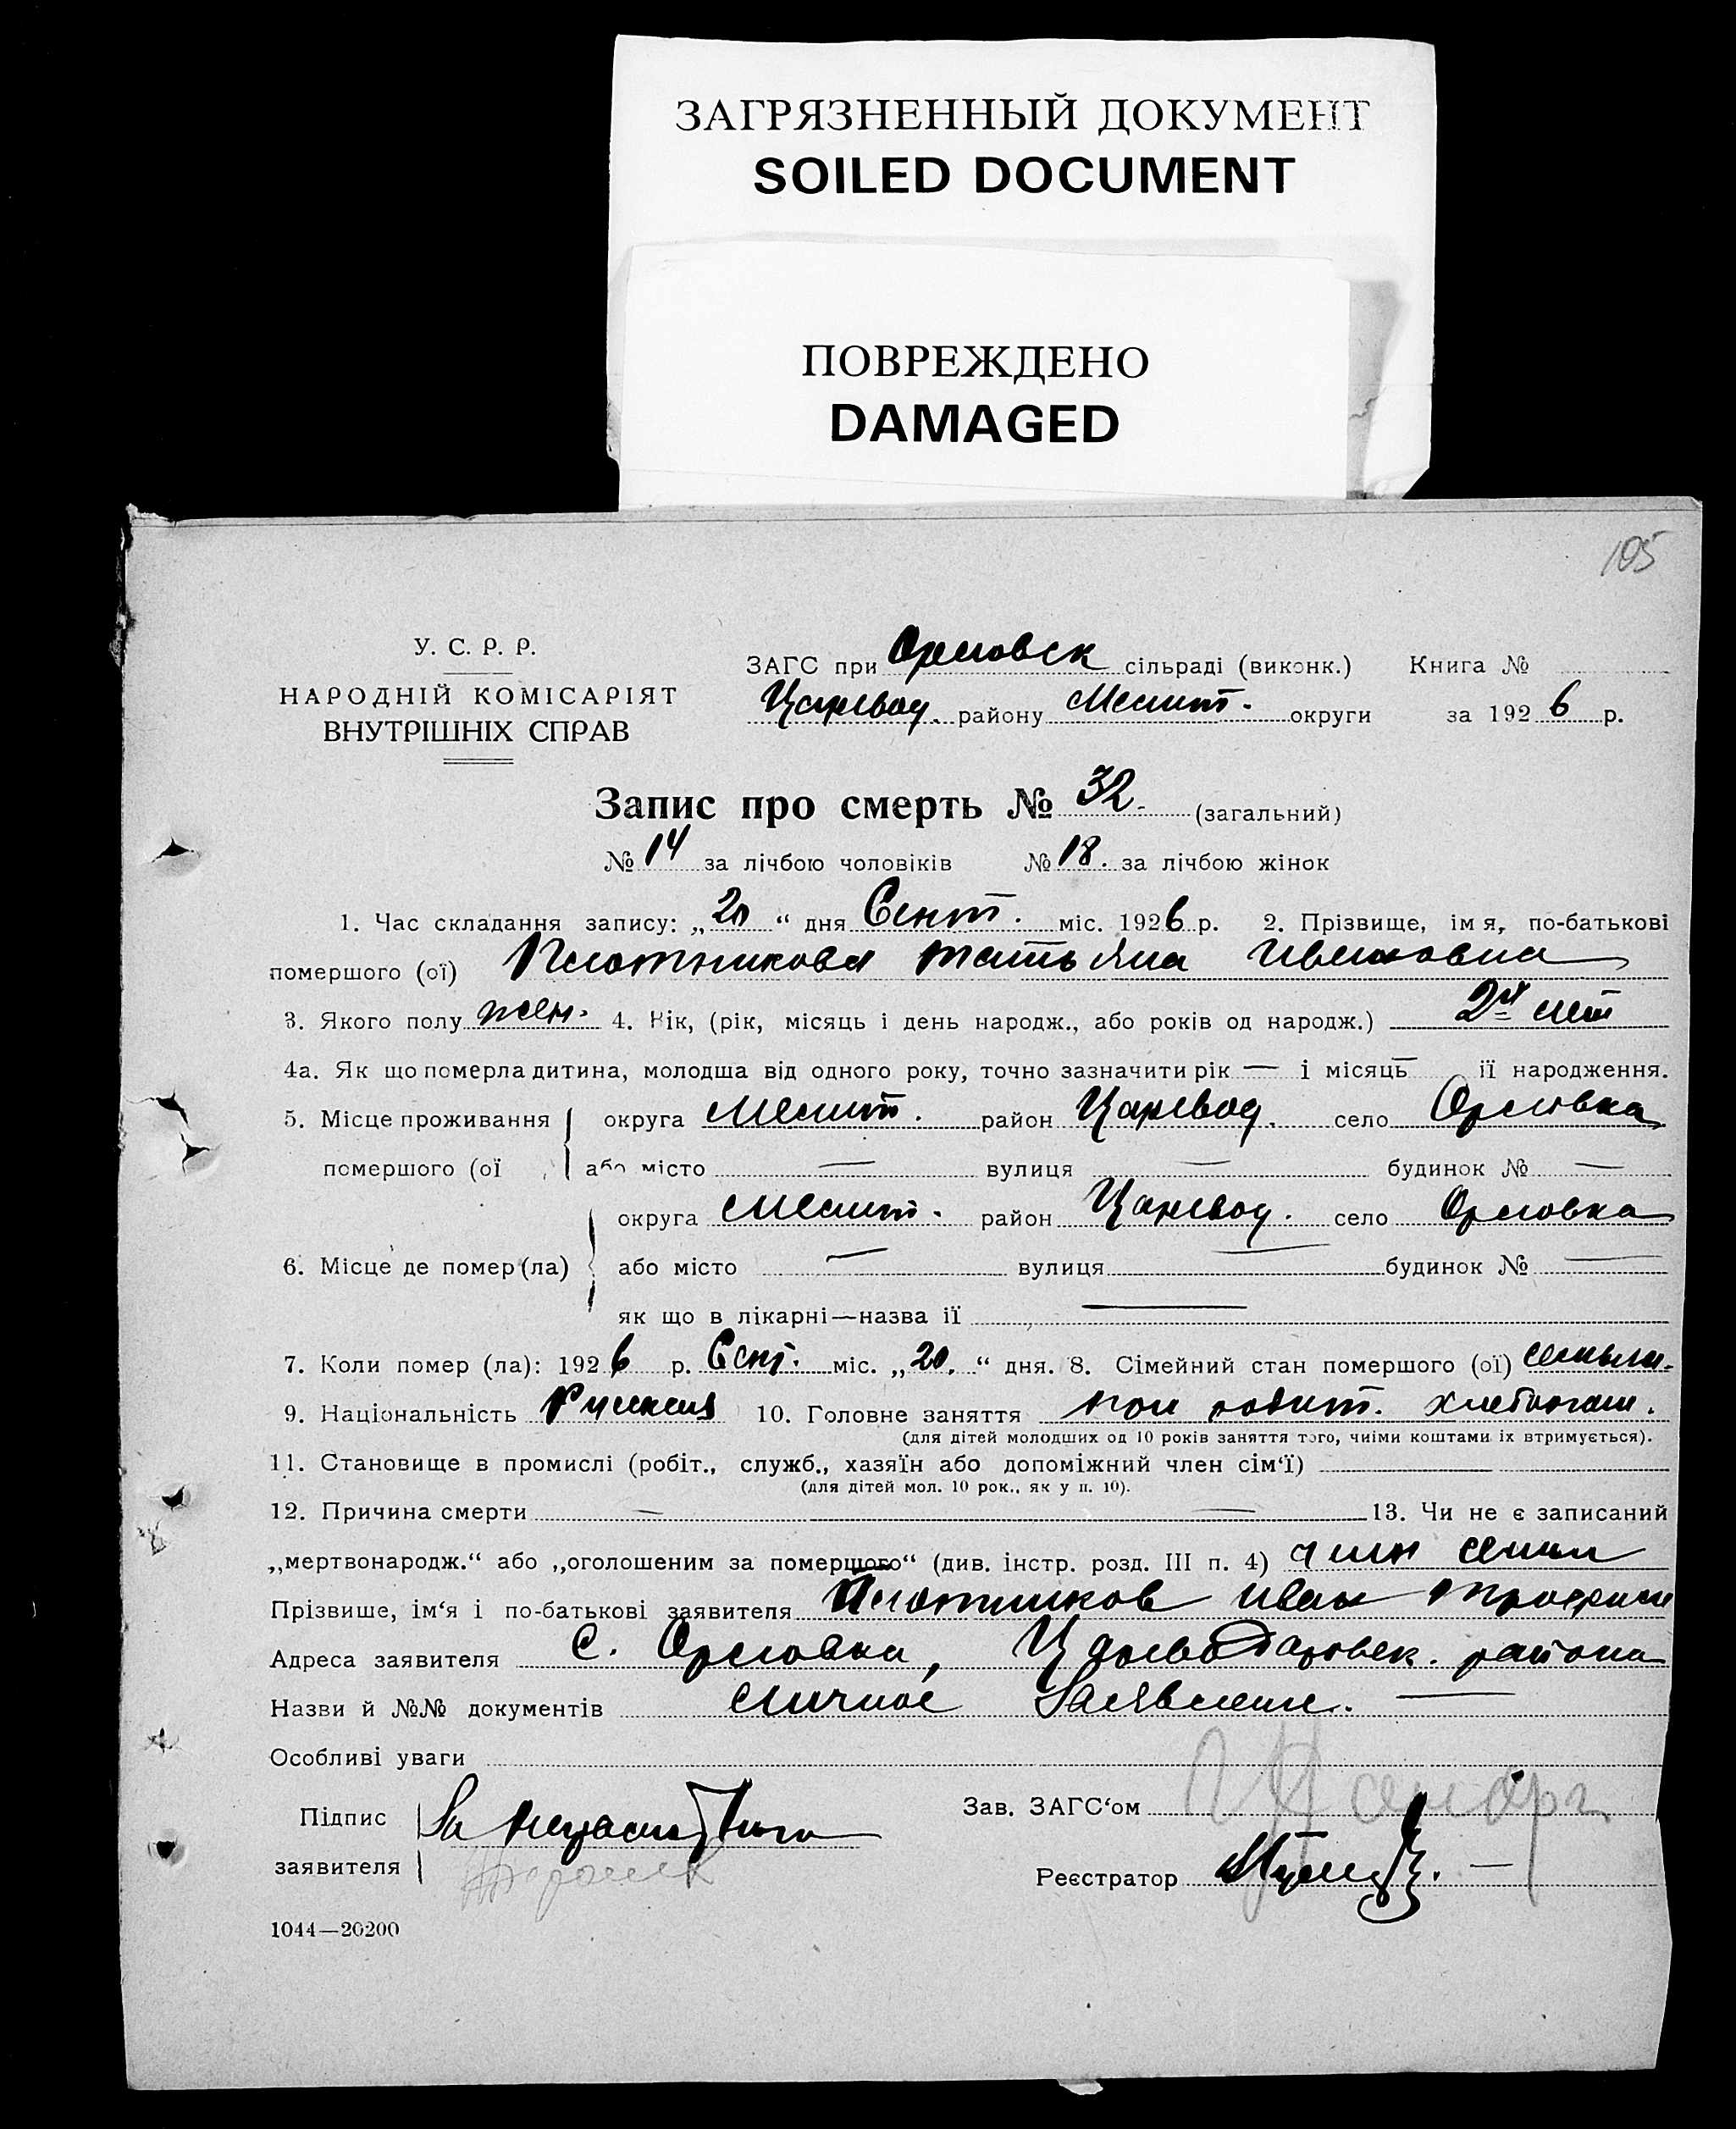 ЗАГРЯЗНЕННЫЙ ДОКУМЕНТ
SOILED DOCUMENT
ПОВРЕЖДЕНО
DAMAGED
105
У. С. Р. Р.
НАРОДНІЙ КОМІСАРІЯТ
ВНУТРІШНІХ СПРАВ
ЗАГС при Орловск сільраді (виконк.) Книга №
Царевод. району Мелит. округи за 1926 р.
Запис про смерть № 32. (загальний)
№ 14 за лічбою чоловіків № 18. за лічбою жінок
1. Час складання запису: „20“ дня Сент. міс. 1926 р. 2. Прізвище, імя, по-батькові
помершого (ої) Плотникова Татьяна Ивановна
3. Якого полу жен. 4. Вік, (рік, місяць і день народж., або років од народж.) 2х лет
4а. Як що померла дитина, молодша від одного року, точно зазначити рік — і місяць — її народження.
5. Місце проживання округа Мелит. район Царевод. село Орловка
помершого (ої або місто — вулиця — будинок № —
округа Мелит. район Царевод. село Орловка
6. Місце де помер(ла) або місто — вулиця — будинок № —
як що в лікарні—назва її —
7. Коли помер (ла): 1926 р. Сент. міс. „20.“ дня. 8. Сімейний стан помершого (ої)
9. Національність Русская 10. Головне заняття при родит. хлебопаш.
(для дітей молодших од 10 років заняття того, чиїми коштами їх втримується).
11. Становище в промислі (робіт., служб., хазяїн або допоміжний член сім‘ї)
(для дітей мол. 10 рок., як у п. 10).
12. Причина смерти — — 13. Чи не є записаний
„мертвонародж.“ або „оголошеним за помершого“ (див. інстр. розд. III п. 4) член семьи
Прізвище, ім‘я і по-батькові заявителя Плотников Иван Трофим
Адреса заявителя с. Орловка, Цареводаровск. района
Назви й №№ документів Личное Заявление. —
Особливі уваги
Підпис За неграмотного
заявителя
Зав. ЗАГС‘ом
Реєстратор
1044—20200